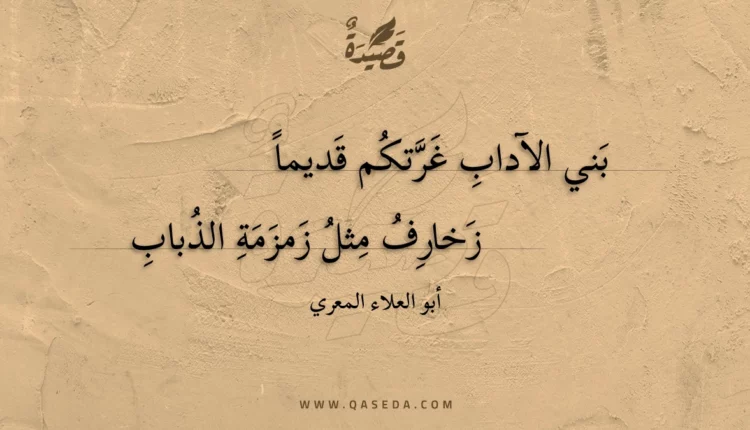 قَصِيدَةٌ
بَني الآدابِ غَرَّتكُم قَديماً
زَخارِفُ مِثلُ زَمزَمَةِ الذُبابِ
أبو العلاء المعري
WWW.QASEDA.COM